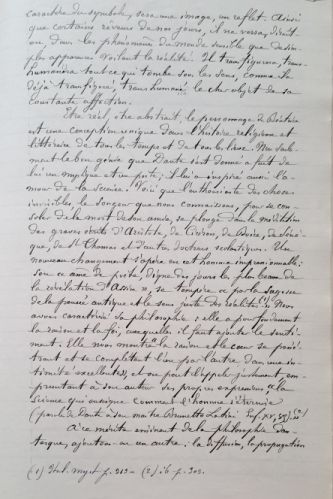 caractère du symbole, sera une image, un reflet. Ainsi
que certains rêveurs de nos jours, il ne verra, dirait
on, dans les phénomènes du monde sensible que de sim-
ples apparences voilant la réalité. Il transfigurera, trans-
humanera tout ce qui tombe sous les sens, comme il a
déjà transfiguré, transhumané le cher objet de sa
constante affection.
Être réel, être abstrait, le personnage de Béatrice
est une conception unique dans l'histoire religieuse et
littéraire de tous les temps et de tous les lieux. Non seule-
ment le bon génie que Dante s'est donné a fait de
lui un mystique et un poète; il lui a inspiré aussi l'a-
mour de la science. Voici que l'enthousiaste des choses
invisibles, le songeur que nous connaissons, pour se con-
soler de la mort de son amie, se plonge dans la méditation
des graves écrits d'Aristote, de Cicéron, de Boèce, de Sénè-
que, de St Thomas et d'autres docteurs scolastiques. Un
nouveau changement s'opère en cet homme impressionnable;
son âme de poète, digne des jours les plus beaux de
la "civilisation d'Assise", se tempère par la sagesse
de la pensée antique et le sens juste des réalités (1). Nous
avons caractérisé sa philosophie: elle a pour fondement
la raison et la foi, auxquelles il faut ajouter le senti-
ment. Elle nous montre la raison et le cœur se péné-
trant et se complétant l'un par l'autre dans une in-
timité excellente (2), et on peut l'appeler justement, em-
pruntant à son auteur ses propres expressions "la
science qui enseigne comment l'homme s'éternise"
(parole de Dante à son maître Brunetto Latini Inf. XV, 85).
A ce mérite éminent de la philosophie dan-
tesque, ajoutons-en un autre: la diffusion, la propagation
(1) Ital. myst. p. 313 – (2) ib. p. 303.